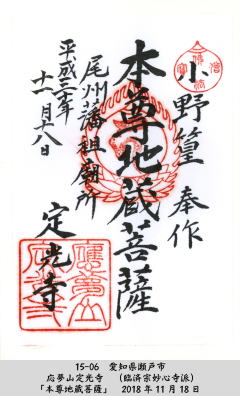 小野篁 奉作
本尊地蔵菩薩
尾州藩祖廟所
平成三十年
十一月十八日
定光寺
15-06 愛知県瀬戸市
応夢山定光寺 (臨済宗妙心寺派)
「本尊地蔵菩薩」 2018年11月18日